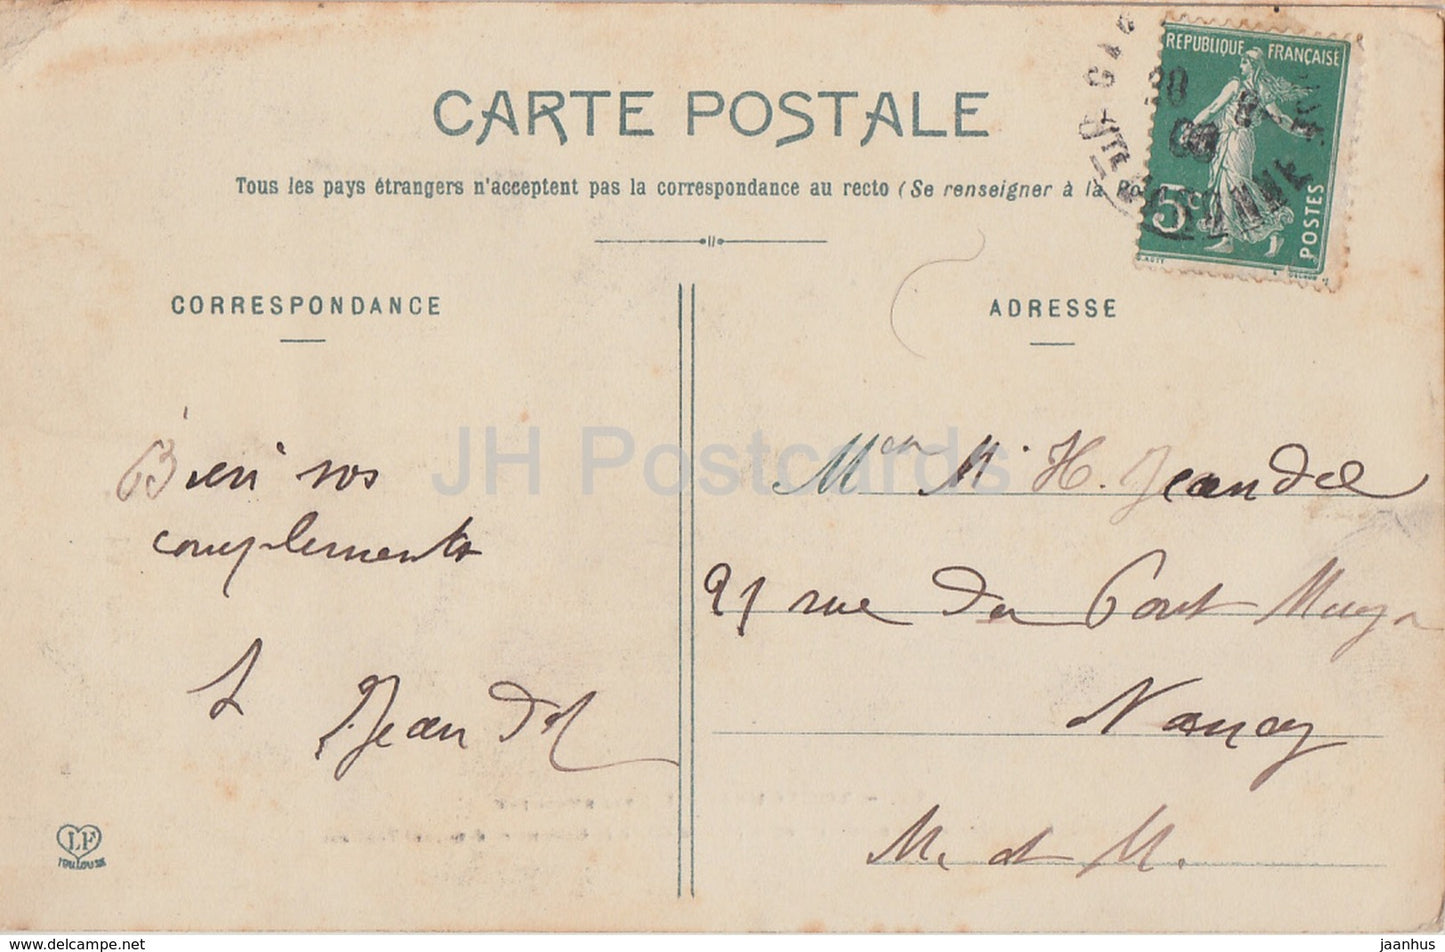 CARTE POSTALE
Tous les pays étrangers n'acceptent pas la correspondance au recto (Se renseigner à la Po
REPUBLIQUE FRANÇAISE
5 c
POSTES
CORRESPONDANCE
ADRESSE
Bien vos
complements
L Jeandel
H. Jeandel
21 rue du Pont Mugn
Nancy
M. et M.
LF
TOULOUSE
JH Postcards
www.delcampe.net
jaanhus